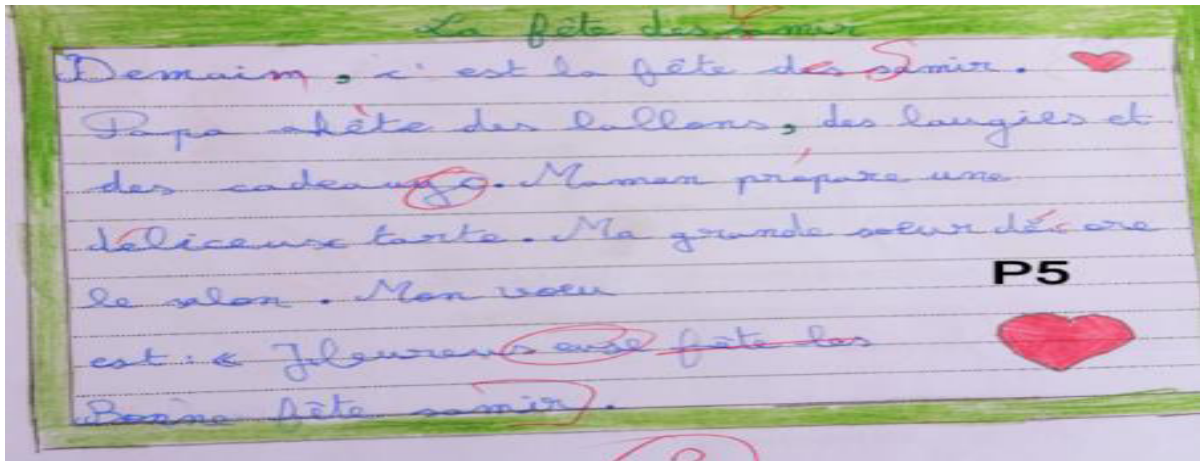 La fête des samir
Demaim, c'est la fête des samir.
Papa ahète des ballons, des baugies et
des cadeau. Maman prépare une
déliceuse tarte. Ma grande sœur décore
le salon. Mon vœu
est : « fête les
Bonne fête samir.
P5